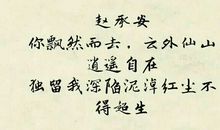 赵承安
你飘然而去，云外仙山
逍遥自在
独留我深陷泥淖红尘不
得超生